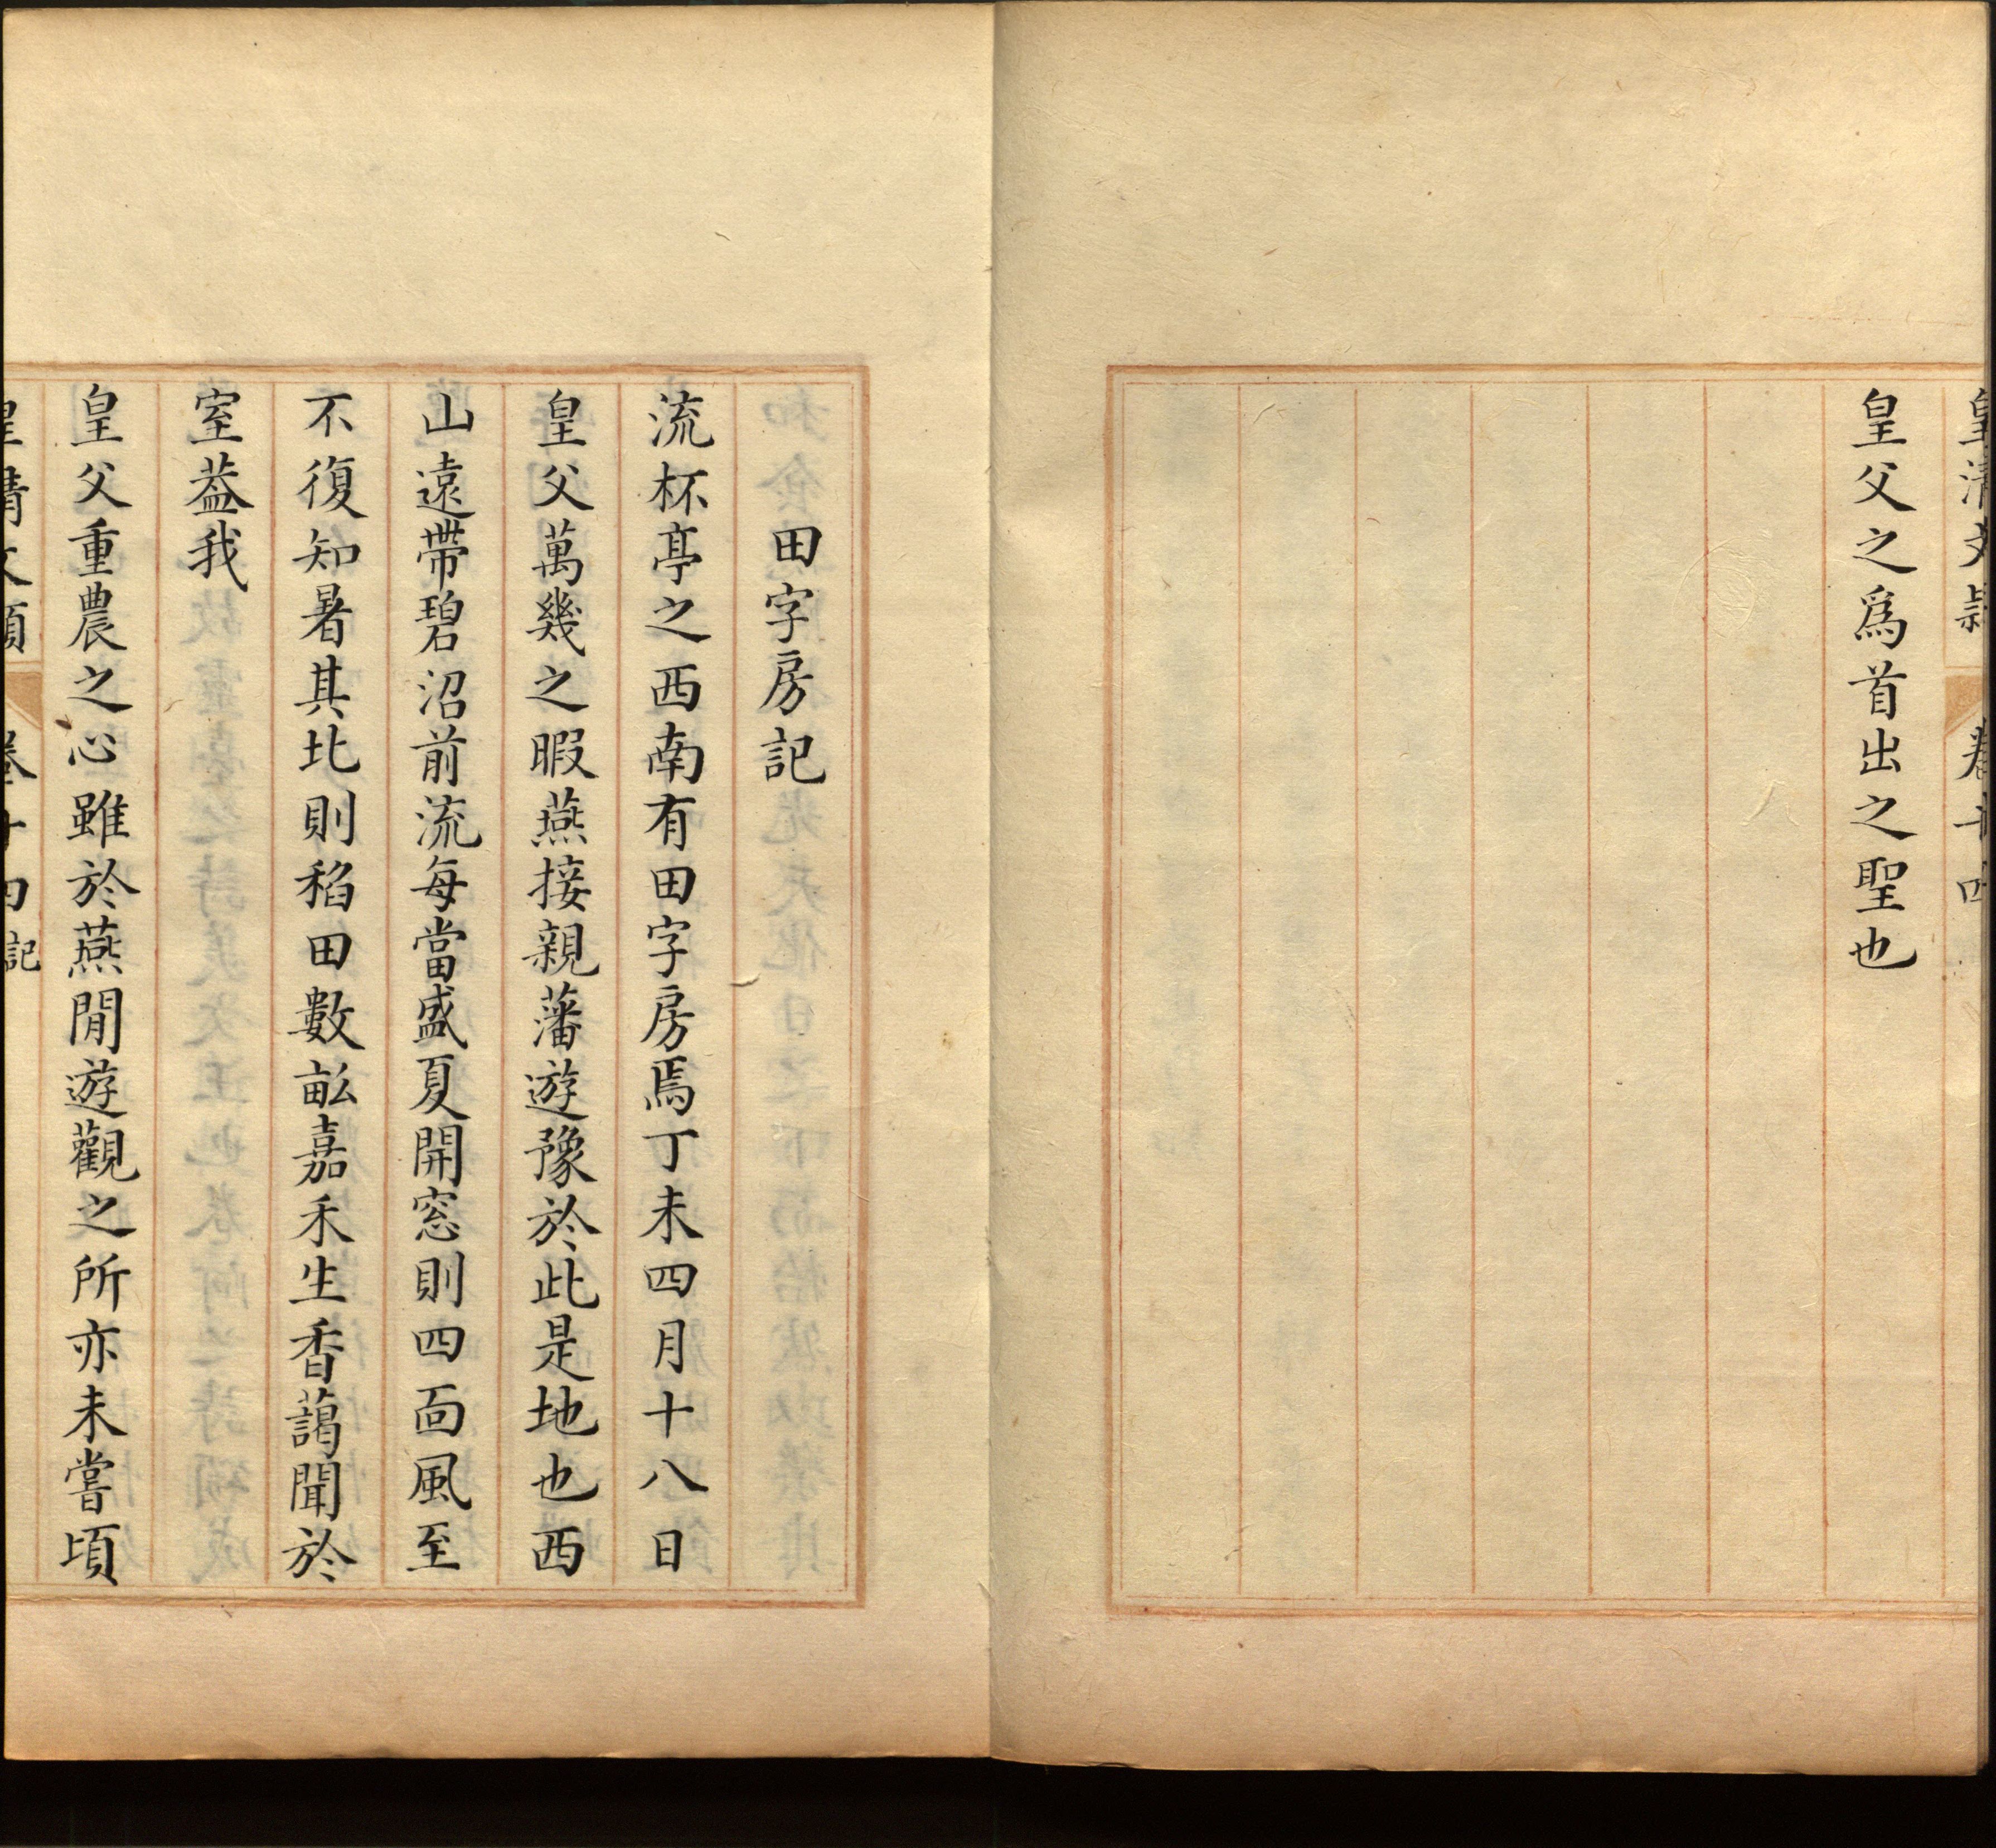 皇清文穎 卷十四
皇父之爲首出之聖也
田字房記
流杯亭之西南有田字房焉丁未四月十八日
皇父萬幾之暇燕接親藩遊豫於此是地也西
山遠帶碧沼前流每當盛夏開窓則四面風至
不復知暑其北則稻田數畝嘉禾生香藹聞於
室葢我
皇父重農之心雖於燕閒遊觀之所亦未嘗頃
皇清文穎 卷十四 記